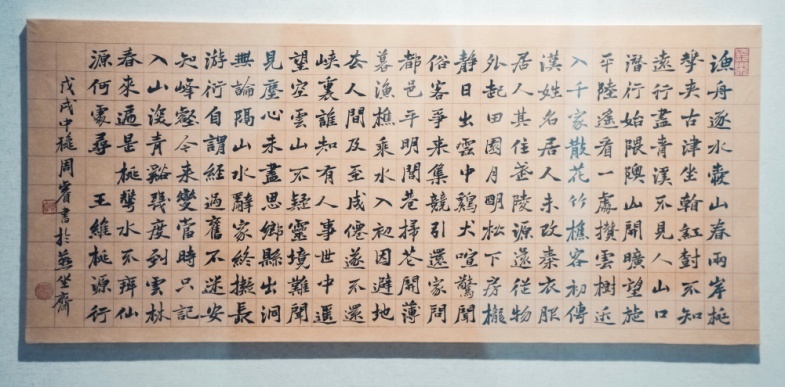 漁舟逐水愛山春兩岸桃
華夾古津坐看紅樹不知
遠行盡青溪不見人山口
潛行始隈隩山開曠望旋
平陸遙看一處攢雲樹近
入千家散花竹樵客初傳
漢姓名居人未改秦衣服
居人共住武陵源還從物
外起田園月明松下房櫳
靜日出雲中鷄犬喧驚聞
俗客爭來集競引還家問
都邑平明閭巷掃花開薄
暮漁樵乘水入初因避地
去人間及至成僊遂不還
峽裏誰知有人事世中遙
望空雲山不疑靈境難聞
見塵心未盡思鄉縣出洞
無論隔山水辭家終擬長
游衍自謂經過舊不迷安
知峰壑今來變當時只記
入山深青谿幾度到雲林
春來遍是桃華水不辨仙
源何處尋 王維桃源行
戊戌中秋周睿書於燕坐齋